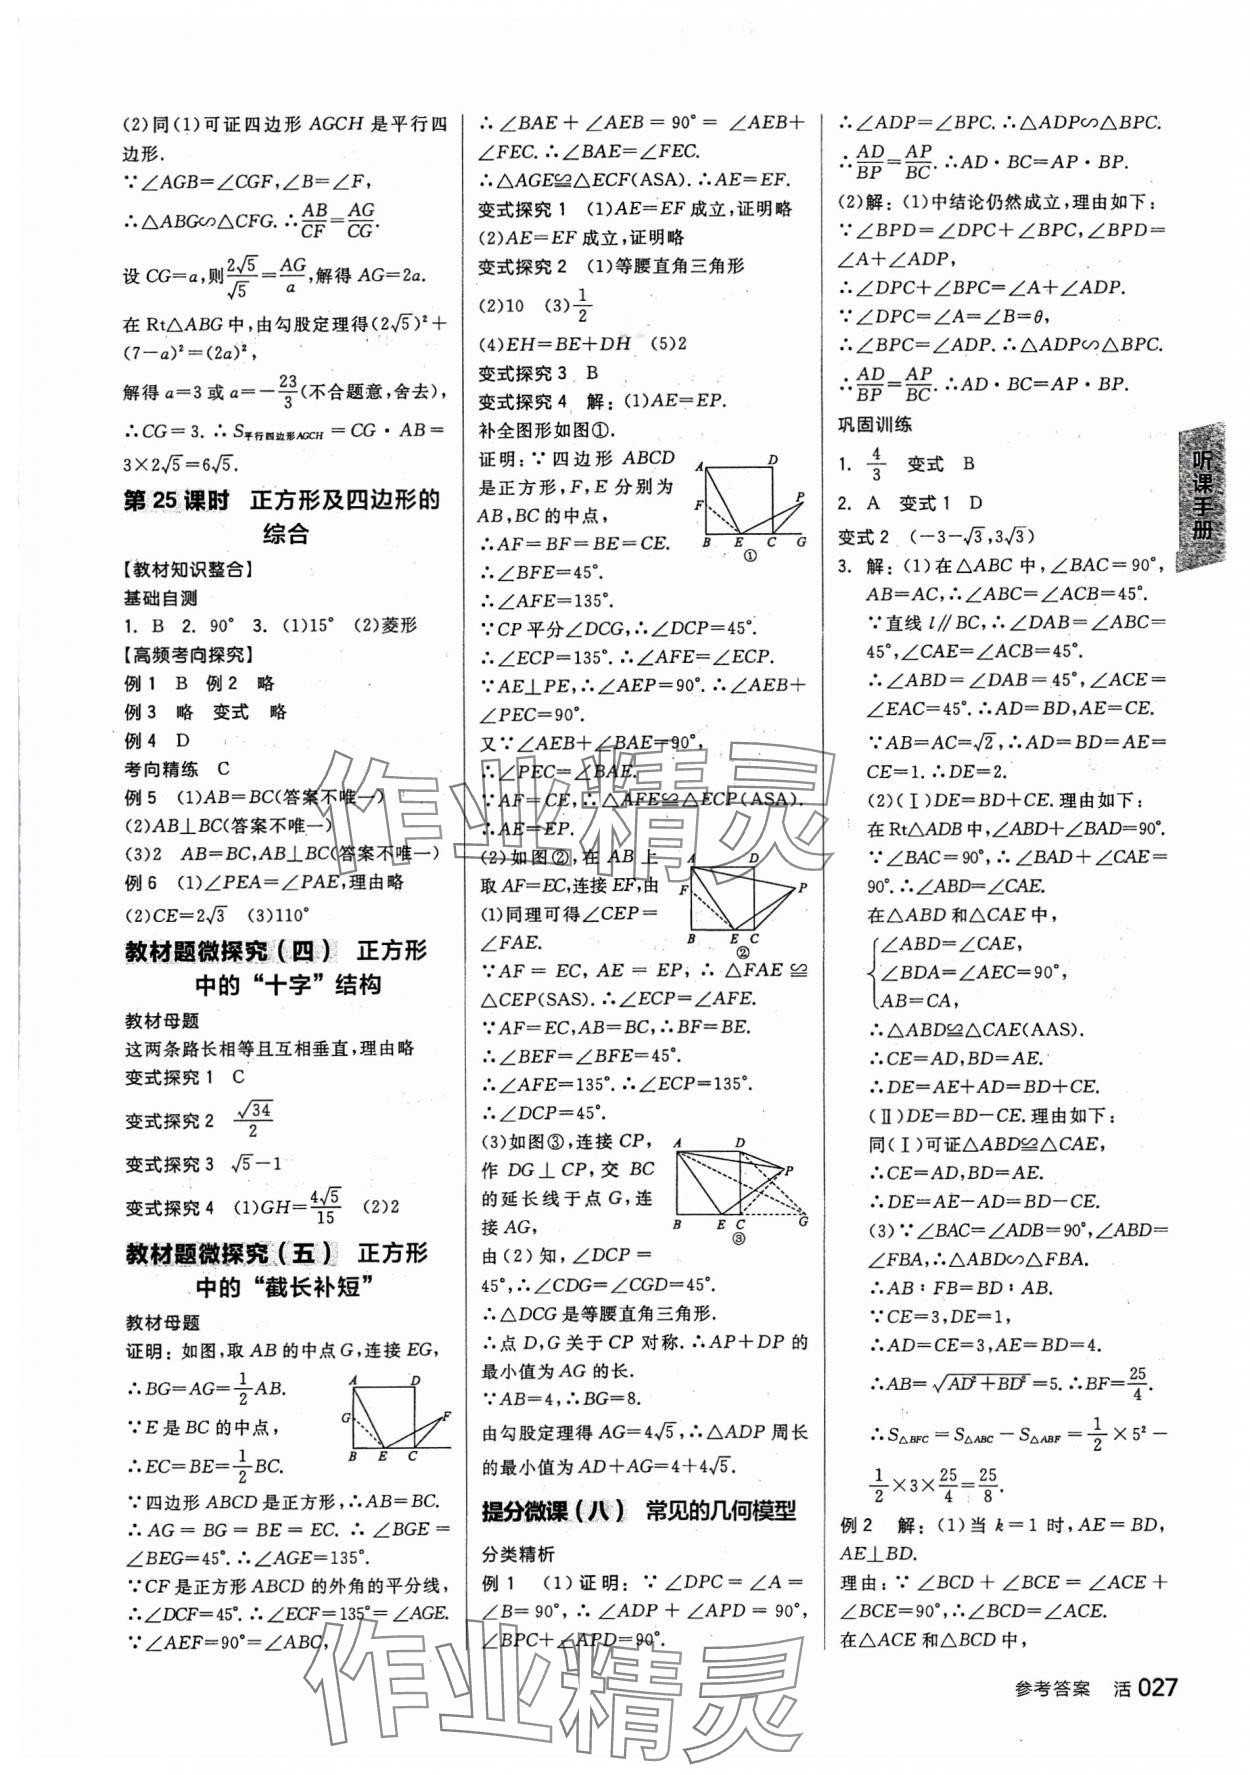 (2)同(1)可证四边形 AGCH 是平行四
边形.
∵∠AGB=∠CGF,∠B=∠F,
∴△ABG∽△CFG.∴AB/CF=AG/CG.
设 CG=a,则2√5/√5=AG/a,解得 AG=2a.
在 Rt△ABG 中,由勾股定理得(2√5)²+
(7-a)²=(2a)²,
解得 a=3 或 a=-23/3(不合题意,舍去),
∴CG=3.∴S平行四边形AGCH=CG·AB=
3×2√5=6√5.
第 25 课时 正方形及四边形的
综合
【教材知识整合】
基础自测
1. B 2. 90° 3. (1)15° (2)菱形
【高频考向探究】
例 1 B 例 2 略
例 3 略 变式 略
例 4 D
考向精练 C
例 5 (1)AB=BC(答案不唯一)
(2)AB⊥BC(答案不唯一)
(3)2 AB=BC,AB⊥BC(答案不唯一)
例 6 (1)∠PEA=∠PAE,理由略
(2)CE=2√3 (3)110°
教材题微探究(四) 正方形
中的“十字”结构
教材母题
这两条路长相等且互相垂直,理由略
变式探究 1 C
变式探究 2 √34/2
变式探究 3 √5-1
变式探究 4 (1)GH=4√5/15 (2)2
教材题微探究(五) 正方形
中的“截长补短”
教材母题
证明:如图,取 AB 的中点 G,连接 EG,
∴BG=AG=1/2AB.
∵E 是 BC 的中点,
∴EC=BE=1/2BC.
A D G F B E C
∵四边形 ABCD 是正方形,∴AB=BC.
∴AG=BG=BE=EC.∴∠BGE=
∠BEG=45°.∴∠AGE=135°.
∵CF 是正方形 ABCD 的外角的平分线,
∴∠DCF=45°.∴∠ECF=135°=∠AGE.
∵∠AEF=90°=∠ABC,
∴∠BAE+∠AEB=90°=∠AEB+
∠FEC.∴∠BAE=∠FEC.
∴△AGE≌△ECF(ASA).∴AE=EF.
变式探究 1 (1)AE=EF 成立,证明略
(2)AE=EF 成立,证明略
变式探究 2 (1)等腰直角三角形
(2)10 (3)1/2
(4)EH=BE+DH (5)2
变式探究 3 B
变式探究 4 解:(1)AE=EP.
补全图形如图①.
证明:∵四边形 ABCD
是正方形,F,E 分别为
AB,BC 的中点,
∴AF=BF=BE=CE.
∴∠BFE=45°.
∴∠AFE=135°.
A D F P B E C G
①
∵CP 平分∠DCG,∴∠DCP=45°.
∴∠ECP=135°.∴∠AFE=∠ECP.
∵AE⊥PE,∴∠AEP=90°.∴∠AEB+
∠PEC=90°.
又∵∠AEB+∠BAE=90°,
∴∠PEC=∠BAE.
∵AF=CE,∴△AFE≌△ECP(ASA).
∴AE=EP.
(2)如图②,在 AB 上
取 AF=EC,连接 EF,由
(1)同理可得∠CEP=
∠FAE.
A D F P B E C
②
∵AF=EC,AE=EP,∴△FAE≌
△CEP(SAS).∴∠ECP=∠AFE.
∵AF=EC,AB=BC,∴BF=BE.
∴∠BEF=∠BFE=45°.
∴∠AFE=135°.∴∠ECP=135°.
∴∠DCP=45°.
(3)如图③,连接 CP,
作 DG⊥CP,交 BC
的延长线于点 G,连
接 AG,
A D P B E C G
③
由(2)知,∠DCP=
45°,∴∠CDG=∠CGD=45°.
∴△DCG 是等腰直角三角形.
∴点 D,G 关于 CP 对称.∴AP+DP 的
最小值为 AG 的长.
∵AB=4,∴BG=8.
由勾股定理得 AG=4√5,∴△ADP 周长
的最小值为 AD+AG=4+4√5.
提分微课(八) 常见的几何模型
分类精析
例 1 (1)证明:∵∠DPC=∠A=
∠B=90°,∴∠ADP+∠APD=90°,
∠BPC+∠APD=90°.
∴∠ADP=∠BPC.∴△ADP∽△BPC.
∴AD/BP=AP/BC.∴AD·BC=AP·BP.
(2)解:(1)中结论仍然成立,理由如下:
∵∠BPD=∠DPC+∠BPC,∠BPD=
∠A+∠ADP,
∴∠DPC+∠BPC=∠A+∠ADP.
∵∠DPC=∠A=∠B=θ,
∴∠BPC=∠ADP.∴△ADP∽△BPC.
∴AD/BP=AP/BC.∴AD·BC=AP·BP.
巩固训练
1. 4/3 变式 B
2. A 变式 1 D
变式 2 (-3-√3,3√3)
3. 解:(1)在△ABC 中,∠BAC=90°,
AB=AC,∴∠ABC=∠ACB=45°.
∵直线 l∥BC,∴∠DAB=∠ABC=
45°,∠CAE=∠ACB=45°.
∴∠ABD=∠DAB=45°,∠ACE=
∠EAC=45°.∴AD=BD,AE=CE.
∵AB=AC=√2,∴AD=BD=AE=
CE=1.∴DE=2.
(2)(Ⅰ)DE=BD+CE.理由如下:
在 Rt△ADB 中,∠ABD+∠BAD=90°.
∵∠BAC=90°,∴∠BAD+∠CAE=
90°.∴∠ABD=∠CAE.
在△ABD 和△CAE 中,
∠ABD=∠CAE,
∠BDA=∠AEC=90°,
AB=CA,
∴△ABD≌△CAE(AAS).
∴CE=AD,BD=AE.
∴DE=AE+AD=BD+CE.
(Ⅱ)DE=BD-CE.理由如下:
同(Ⅰ)可证△ABD≌△CAE,
∴CE=AD,BD=AE.
∴DE=AE-AD=BD-CE.
(3)∵∠BAC=∠ADB=90°,∠ABD=
∠FBA,∴△ABD∽△FBA.
∴AB∶FB=BD∶AB.
∵CE=3,DE=1,
∴AD=CE=3,AE=BD=4.
∴AB=√AD²+BD²=5.∴BF=25/4.
∴S△BFC=S△ABC-S△ABF=1/2×5²-
1/2×3×25/4=25/8.
例 2 解:(1)当 k=1 时,AE=BD,
AE⊥BD.
理由:∵∠BCD+∠BCE=∠ACE+
∠BCE=90°,∴∠BCD=∠ACE.
在△ACE 和△BCD 中,
听课手册
参考答案 活 027
作业精灵
作业精灵